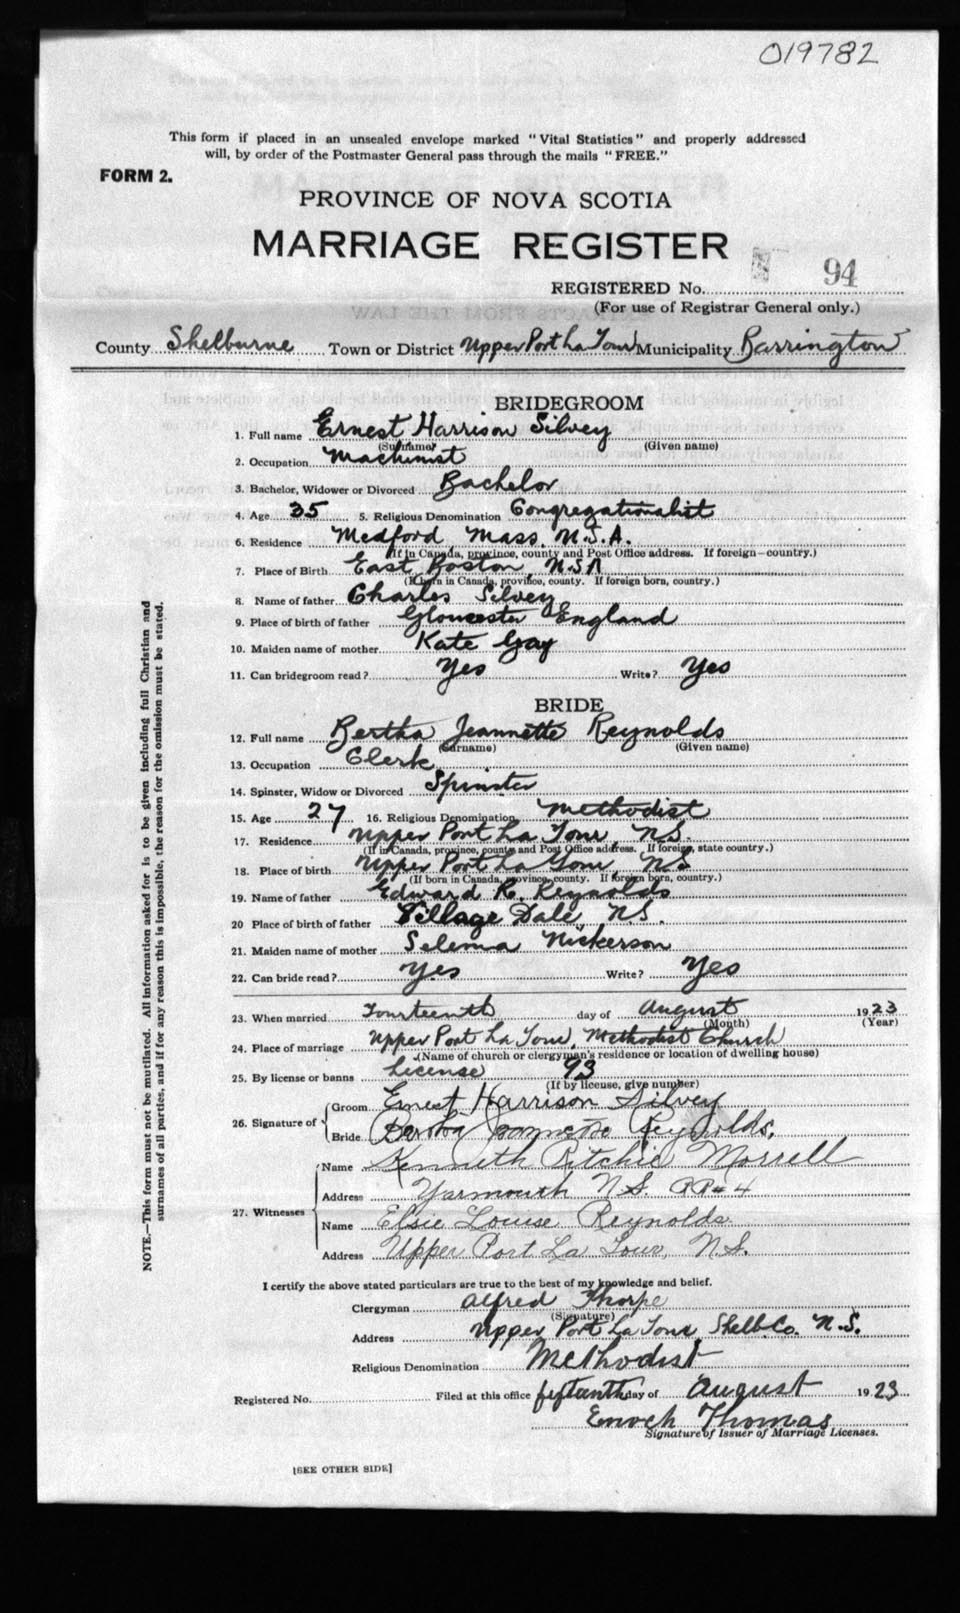 019782
This form if placed in an unsealed envelope marked "Vital Statistics" and properly addressed
will, by order of the Postmaster General pass through the mails "FREE."
FORM 2.
PROVINCE OF NOVA SCOTIA
MARRIAGE REGISTER
REGISTERED No. 94
(For use of Registrar General only.)
County Shelburne Town or District Upper Port La Tour Municipality Barrington
BRIDEGROOM
1. Full name Ernest Harrison Silvey
(Surname) (Given name)
2. Occupation Machinist
3. Bachelor, Widower or Divorced Bachelor
4. Age 35 5. Religious Denomination Congregationalist
6. Residence Medford Mass. U.S.A.
(If in Canada, province, county and Post Office address. If foreign—country.)
7. Place of Birth East Boston, U.S.A
(If born in Canada, province, county. If foreign born, country.)
8. Name of father Charles Silvey
9. Place of birth of father Gloucester England
10. Maiden name of mother Kate Gay
11. Can bridegroom read? Yes Write? Yes
BRIDE
12. Full name Bertha Jeannette Reynolds
(Surname) (Given name)
13. Occupation Clerk
14. Spinster, Widow or Divorced Spinster
15. Age 27 16. Religious Denomination Methodist
17. Residence Upper Port La Tour, N.S.
(If in Canada, province, county and Post Office address. If foreign, state country.)
18. Place of birth Upper Port La Tour, N.S
(If born in Canada, province, county. If foreign born, country.)
19. Name of father Edward R. Reynolds
20 Place of birth of father Village Dale N.S.
21. Maiden name of mother Selema Nickerson
22. Can bride read? Yes Write? Yes
23. When married Fourteenth day of August 1923
(Month) (Year)
24. Place of marriage Upper Port La Tour, Methodist Church
(Name of church or clergyman's residence or location of dwelling house)
25. By license or banns License 93
(If by license, give number)
26. Signature of
Groom Ernest Harrison Silvey
Bride Bertha Jeannette Reynolds.
27. Witnesses
Name Kenneth Ritchie Morrell
Address Yarmouth N.S. RR#4
Name Elsie Louise Reynolds.
Address Upper Port La Tour, N.S.
I certify the above stated particulars are true to the best of my knowledge and belief.
Clergyman Alfred Thorpe
(Signature)
Address Upper Port La Tour, Shelb. Co. N.S.
Religious Denomination Methodist
Registered No. Filed at this office fifteenth day of August 1923
Enoch Thomas
Signature of Issuer of Marriage Licenses.
[SEE OTHER SIDE]
NOTE.—This form must not be mutilated. All information asked for is to be given including full Christian and
surnames of all parties, and if for any reason this is impossible, the reason for the omission must be stated.